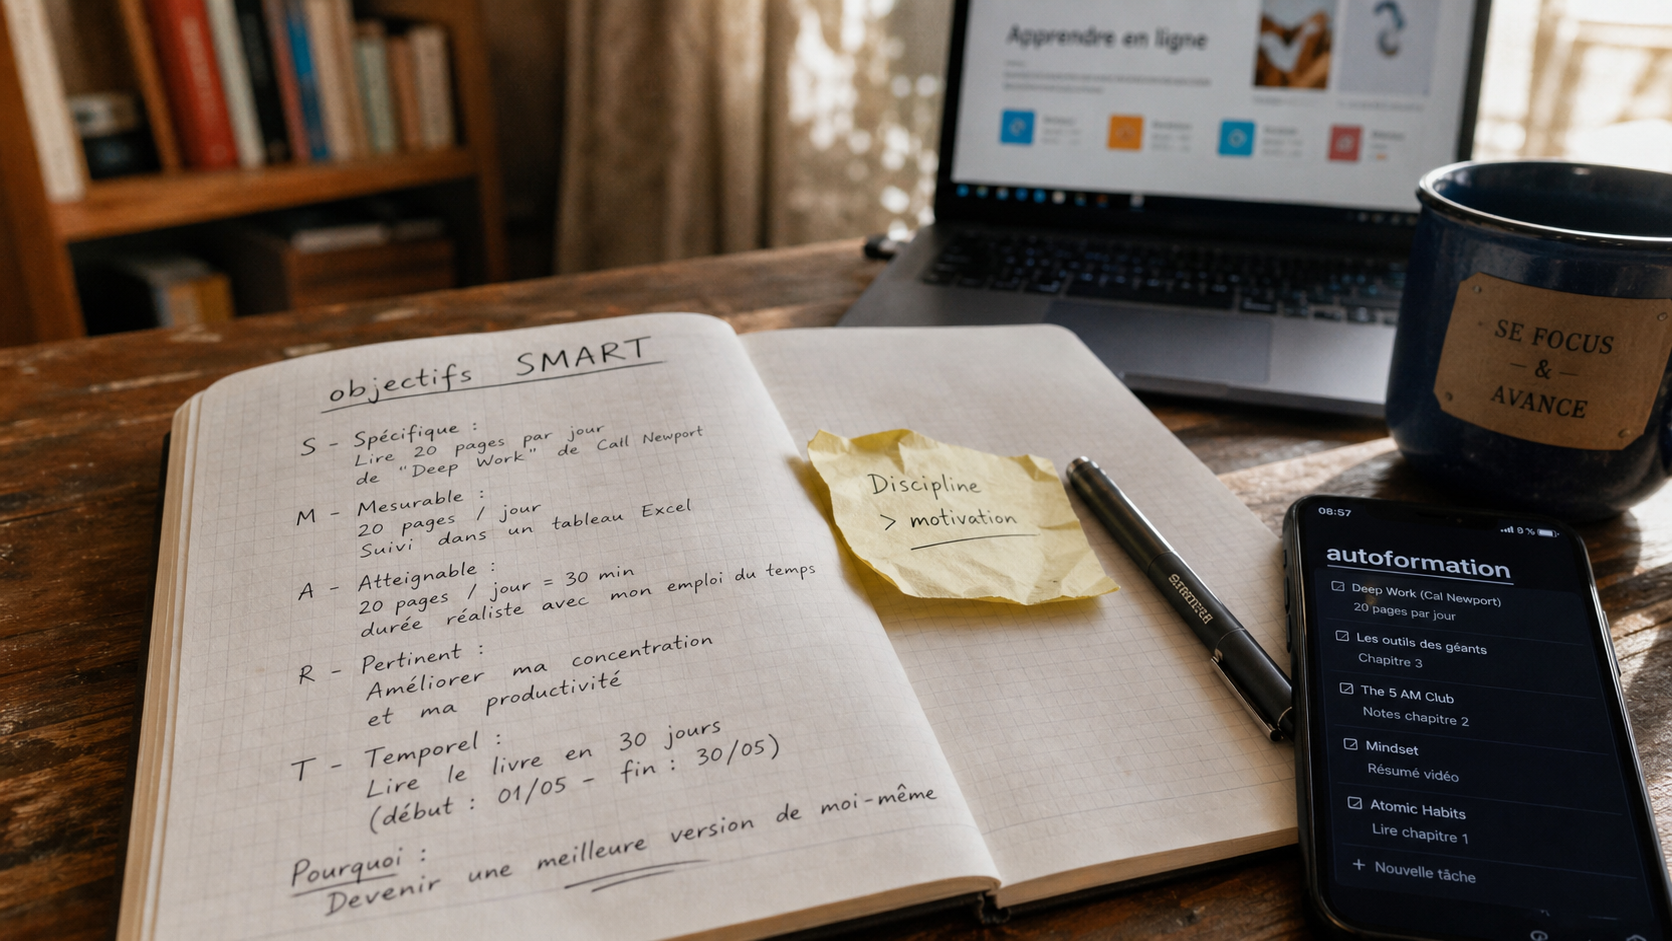 objectifs SMART
S - Spécifique :
Lire 20 pages par jour
de "Deep Work" de Call Newport
M - Mesurable :
20 pages / jour
Suivi dans un tableau Excel
A - Atteignable :
20 pages / jour = 30 min
durée réaliste avec mon emploi du temps
R - Pertinent :
Améliorer ma concentration
et ma productivité
T - Temporel :
Lire le livre en 30 jours
(début : 01/05 - fin : 30/05)
Pourquoi :
Devenir une meilleure version de moi-même
Discipline
> motivation
Apprendre en ligne
SE FOCUS
- & -
AVANCE
08:57
9 %
autoformation
Deep Work (Cal Newport)
20 pages par jour
Les outils des géants
Chapitre 3
The 5 AM Club
Notes chapitre 2
Mindset
Résumé vidéo
Atomic Habits
Lire chapitre 1
+ Nouvelle tâche